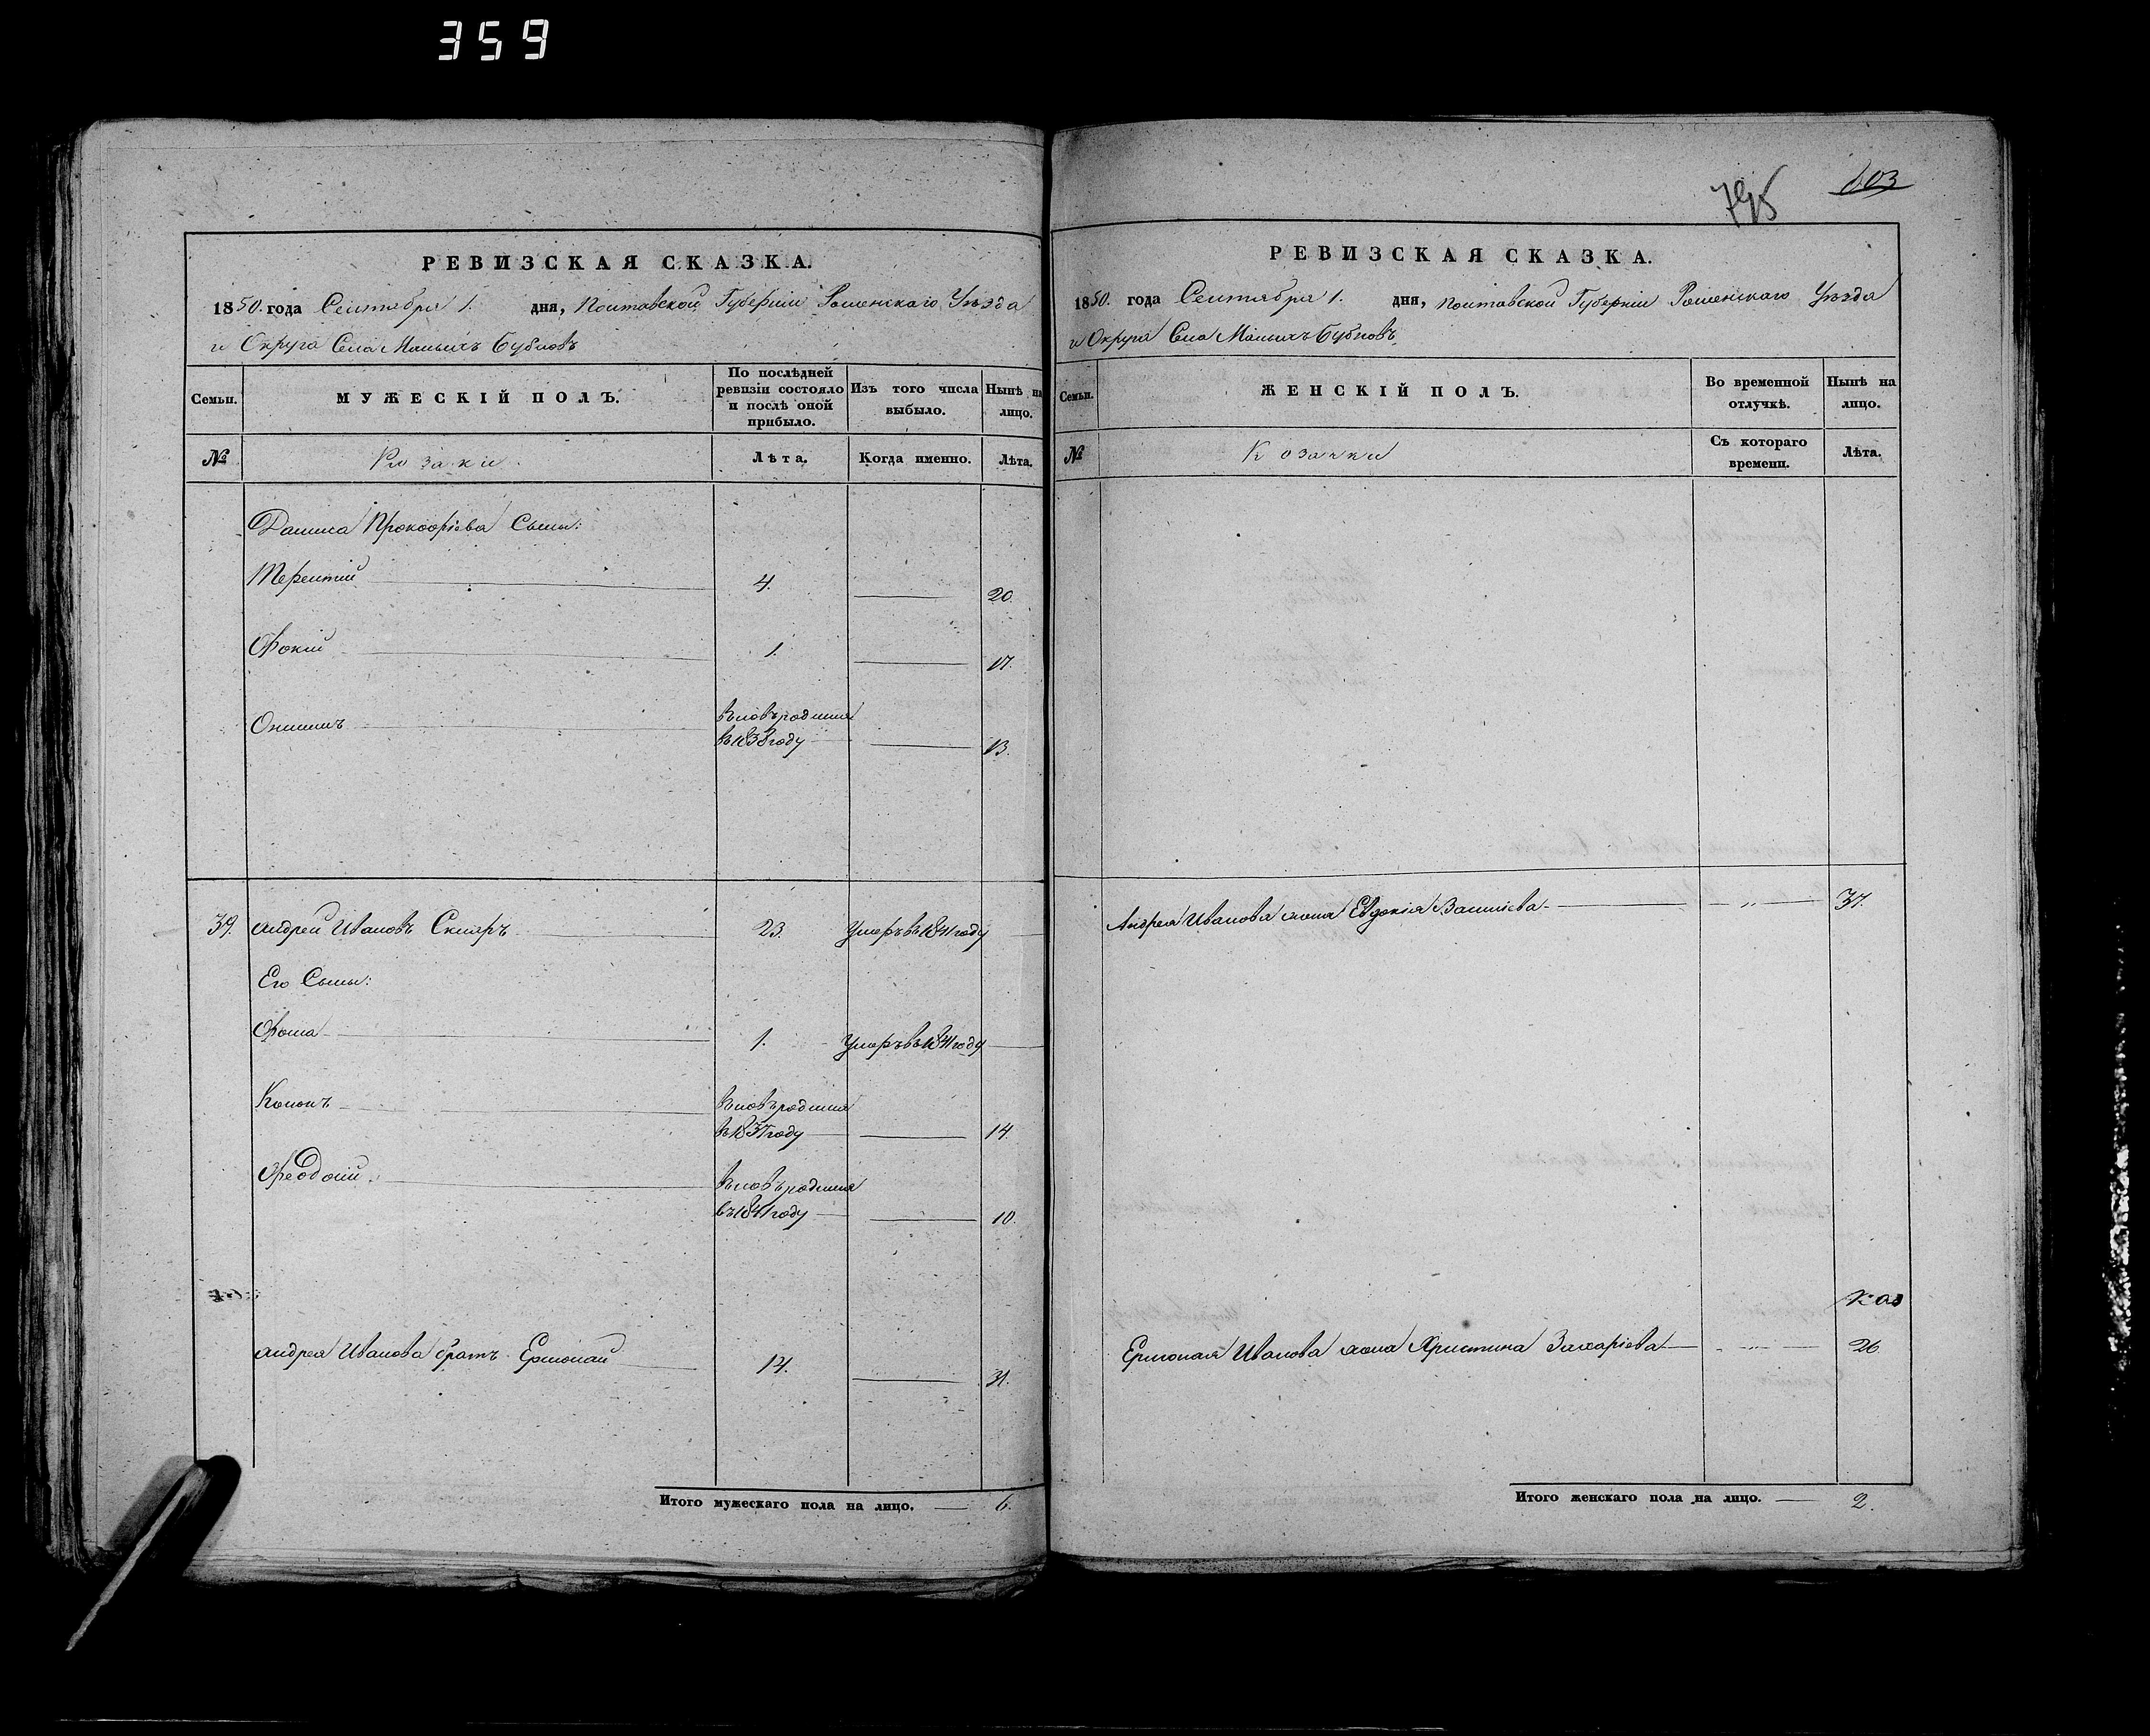 359
795 803
РЕВИЗСКАЯ СКАЗКА.
1850. года Сентября 1. дня, Полтавской Губерніи Роменскаго Уѣзда
и Округа Села Малыхъ Бубновъ
Семьи. МУЖЕСКІЙ ПОЛЪ. По послѣдней ревизіи состояло и послѣ оной прибыло. Изъ того числа выбыло. Нынѣ на лицо.
№ Козаки Лѣта. Когда именно. Лѣта.
Данила Прокофіева Сыны:
Терентій 4. 20.
Фокій 1. 17.
Онисимъ вновь родился
въ 1838 году 13.
39. Андрей Ивановъ Скляръ 23. Умеръ въ 1841 году
Его Сыны:
Фома 1. Умеръ въ 1841 году
Кононъ вновь родился
въ 1837 году 14.
Феодосій вновь родился
въ 1841 году 10.
Андрея Иванова братъ Ермолай 14. 31.
Итого мужескаго пола на лицо. 6.
РЕВИЗСКАЯ СКАЗКА.
1850. года Сентября 1. дня, Полтавской Губерніи Роменскаго Уѣзда
и Округа Села Малыхъ Бубновъ
Семьи. ЖЕНСКІЙ ПОЛЪ. Во временной отлучкѣ. Нынѣ на лицо.
№ Козачки Съ котораго времени. Лѣта.
Андрея Иванова жена Евдокія Василіева 37.
Ермолая Иванова жена Христина Захаріева 26
Итого женскаго пола на лицо. 2.